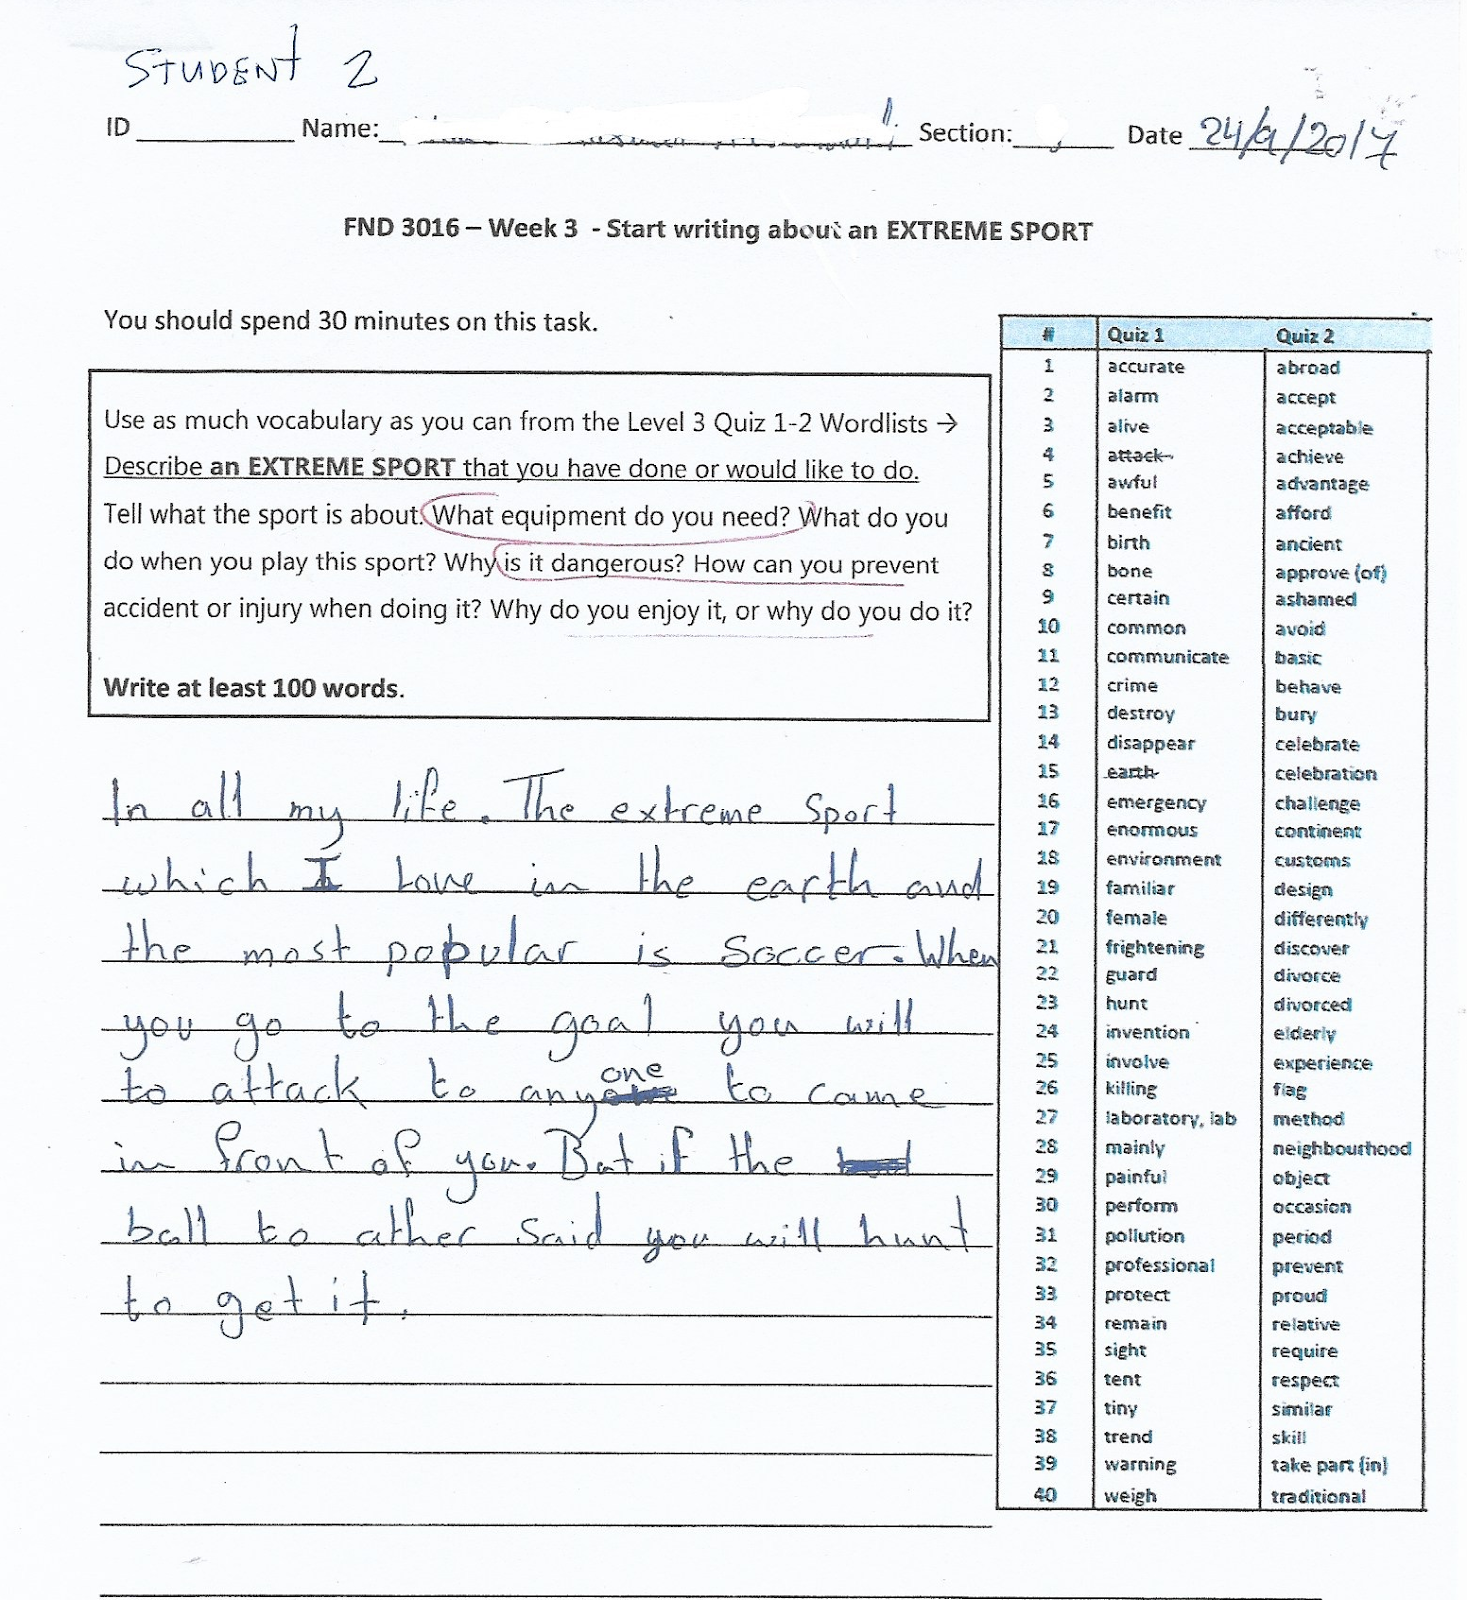 STUDENT 2
ID Name: Section: Date 24/9/2017
FND 3016 – Week 3 - Start writing about an EXTREME SPORT
You should spend 30 minutes on this task.
Use as much vocabulary as you can from the Level 3 Quiz 1-2 Wordlists →
Describe an EXTREME SPORT that you have done or would like to do.
Tell what the sport is about. What equipment do you need? What do you
do when you play this sport? Why is it dangerous? How can you prevent
accident or injury when doing it? Why do you enjoy it, or why do you do it?
Write at least 100 words.
In all my life. The extreme sport
which I love in the earth and
the most popular is Soccer. When
you go to the goal you will
to attack to anyone to came
in front of you. But if the
ball to ather said you will hunt
to get it.
# Quiz 1 Quiz 2
1 accurate abroad
2 alarm accept
3 alive acceptable
4 attack achieve
5 awful advantage
6 benefit afford
7 birth ancient
8 bone approve (of)
9 certain ashamed
10 common avoid
11 communicate basic
12 crime behave
13 destroy bury
14 disappear celebrate
15 earth celebration
16 emergency challenge
17 enormous continent
18 environment customs
19 familiar design
20 female differently
21 frightening discover
22 guard divorce
23 hunt divorced
24 invention elderly
25 involve experience
26 killing flag
27 laboratory, lab method
28 mainly neighbourhood
29 painful object
30 perform occasion
31 pollution period
32 professional prevent
33 protect proud
34 remain relative
35 sight require
36 tent respect
37 tiny similar
38 trend skill
39 warning take part (in)
40 weigh traditional